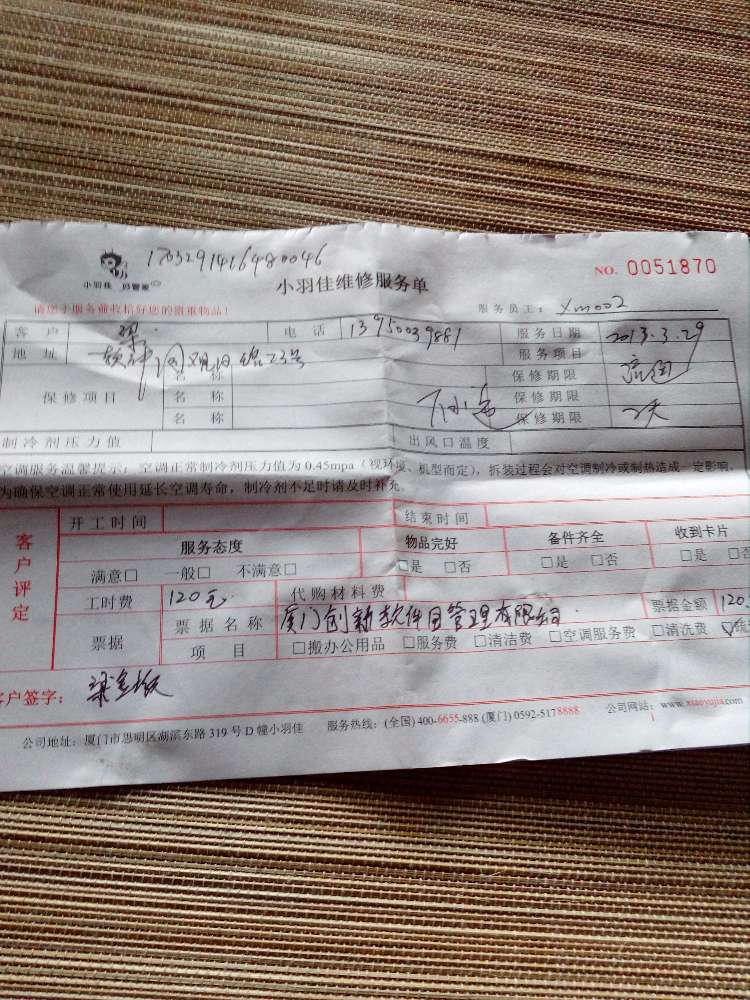 1703291416480046
小羽佳 好管家
小羽佳维修服务单
NO. 0051870
请您于服务前收拾好您的贵重物品！
服务员工： Xm002
客户 梁 电话 13950039881 服务日期 2013.3.29
地址 23号 服务项目
保修项目 名称 保修期限
名称 保修期限
名称 保修期限 2天
制冷剂压力值 出风口温度
空调服务温馨提示：空调正常制冷剂压力值为0.45mpa（视环境、机型而定），拆装过程会对空调制冷或制热造成一定影响，
为确保空调正常使用延长空调寿命，制冷剂不足时请及时补充。
客户评定
开工时间 结束时间
服务态度 物品完好 备件齐全 收到卡片
满意□ 一般□ 不满意□ □是 □否 □是 □否 □是 □否
工时费 120元 代购材料费
票据 票据名称 厦门创新软件园管理有限公司 票据金额 120
项目 □搬办公用品 □服务费 □清洁费 □空调服务费 □清洗费
客户签字：
公司地址：厦门市思明区湖滨东路319号D幢小羽佳 服务热线：(全国) 400-6655-888 (厦门) 0592-5178888 公司网站：www.xiaoyujia.com